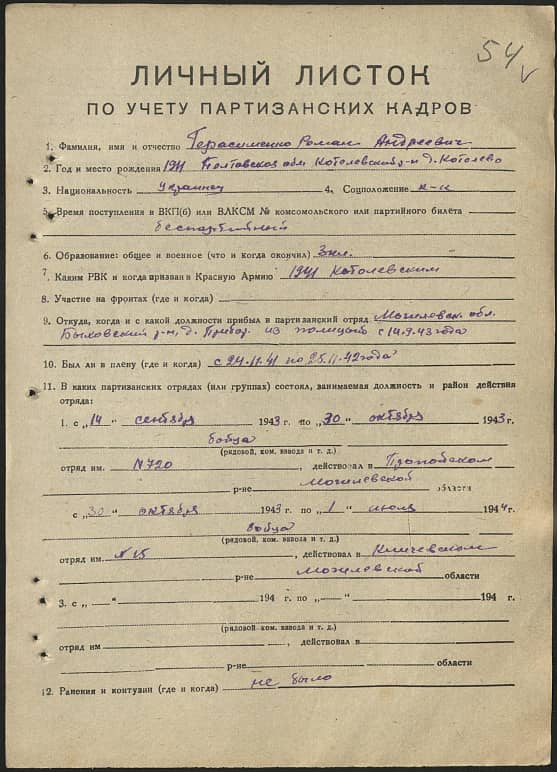 54
ЛИЧНЫЙ ЛИСТОК
ПО УЧЕТУ ПАРТИЗАНСКИХ КАДРОВ
1. Фамилия, имя и отчество Герасименко Роман Андреевич
2. Год и место рождения 1911 Полтавская обл Котелевский р-н д. Котелево
3. Национальность украинец 4. Соцположение к-н
5. Время поступления в ВКП(б) или ВЛКСМ № комсомольского или партийного билета
беспартийный
6. Образование: общее и военное (что и когда окончил) 3 кл.
7. Каким РВК и когда призван в Красную Армию 1941 Котолевским
8. Участие на фронтах (где и когда)
9. Откуда, когда и с какой должности прибыл в партизанский отряд Могилевск. обл.
Быховский р-н, д. из полиции с 14.9.43 года
10. Был ли в плену (где и когда) с 24.11.41 по 25.11.42 года
11. В каких партизанских отрядах (или группах) состоял, занимаемая должность и район действия
отряда:
1. с „14" сентября 1943 г. по „30" октября 1943 г.
бойца
(рядовой, ком. взвода и т. д.)
отряд им. №720, действовал в Пропойском
р-не Могилевской области
с „30" октября 1943 г. по „1" июля 1944 г.
бойца
(рядовой ком. взвода и т. д.)
отряд им. №15, действовал в Кличевском
р-не Могилевской области
3. с „ " 194 г. по „ " 194 г.
(рядовой ком. взвода и т. д.)
отряд им , действовал в
р-не области
12. Ранения и контузии (где и когда) не было